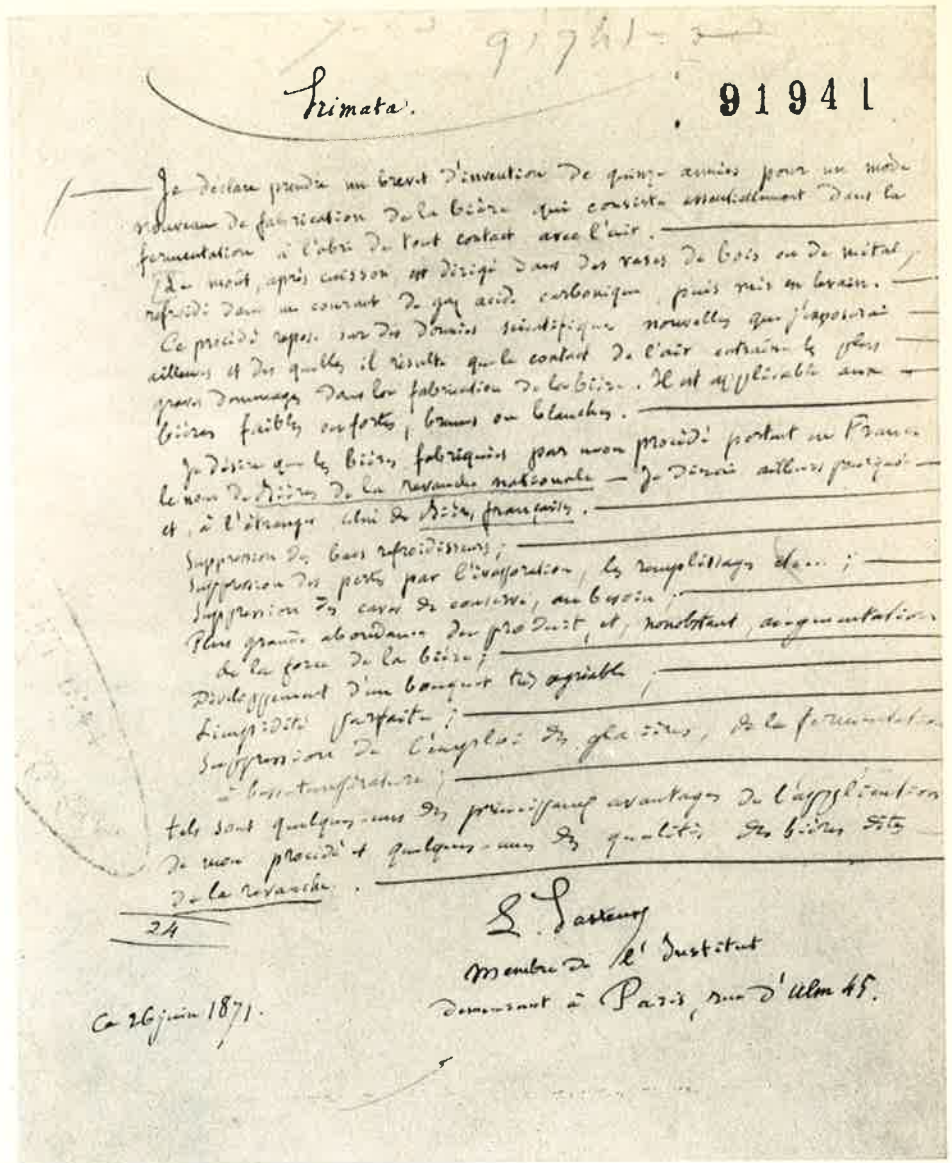 91941
Primata.
91941
Je déclare prendre un brevet d'invention de quinze années pour un mode
nouveau de fabrication de la bière qui consiste essentiellement dans la
fermentation à l'abri de tout contact avec l'air.
Le moût, après cuisson, est dirigé dans des vases de bois ou de métal,
refroidi dans un courant de gaz acide carbonique, puis mis en levain.
Ce procédé repose sur des données scientifiques nouvelles que j'exposerai
ailleurs et des quelles il résulte que le contact de l'air entraîne les plus
graves dommages dans la fabrication de la bière. Il est applicable aux
bières faibles ou fortes, brunes ou blanches.
Je désire que les bières fabriquées par mon procédé portent en France
le nom de Bières de la revanche nationale — Je dirai ailleurs pourquoi —
et, à l'étranger celui de Bières françaises.
Suppression des bacs refroidisseurs;
Suppression des pertes par l'évaporation, les remplissages etc...;
Suppression des caves de conserve, au besoin;
Plus grande abondance du produit, et, nonobstant, augmentation
de la force de la bière;
Développement d'un bouquet très agréable;
Limpidité parfaite;
Suppression de l'emploi des glacières, de la fermentation
à basse température;
tels sont quelques-uns des principaux avantages de l'application
de mon procédé et quelques-unes des qualités des bières dites
de la revanche.
24
L. Pasteur
Membre de l'Institut
demeurant à Paris, rue d'Ulm 45.
Ce 26 juin 1871.